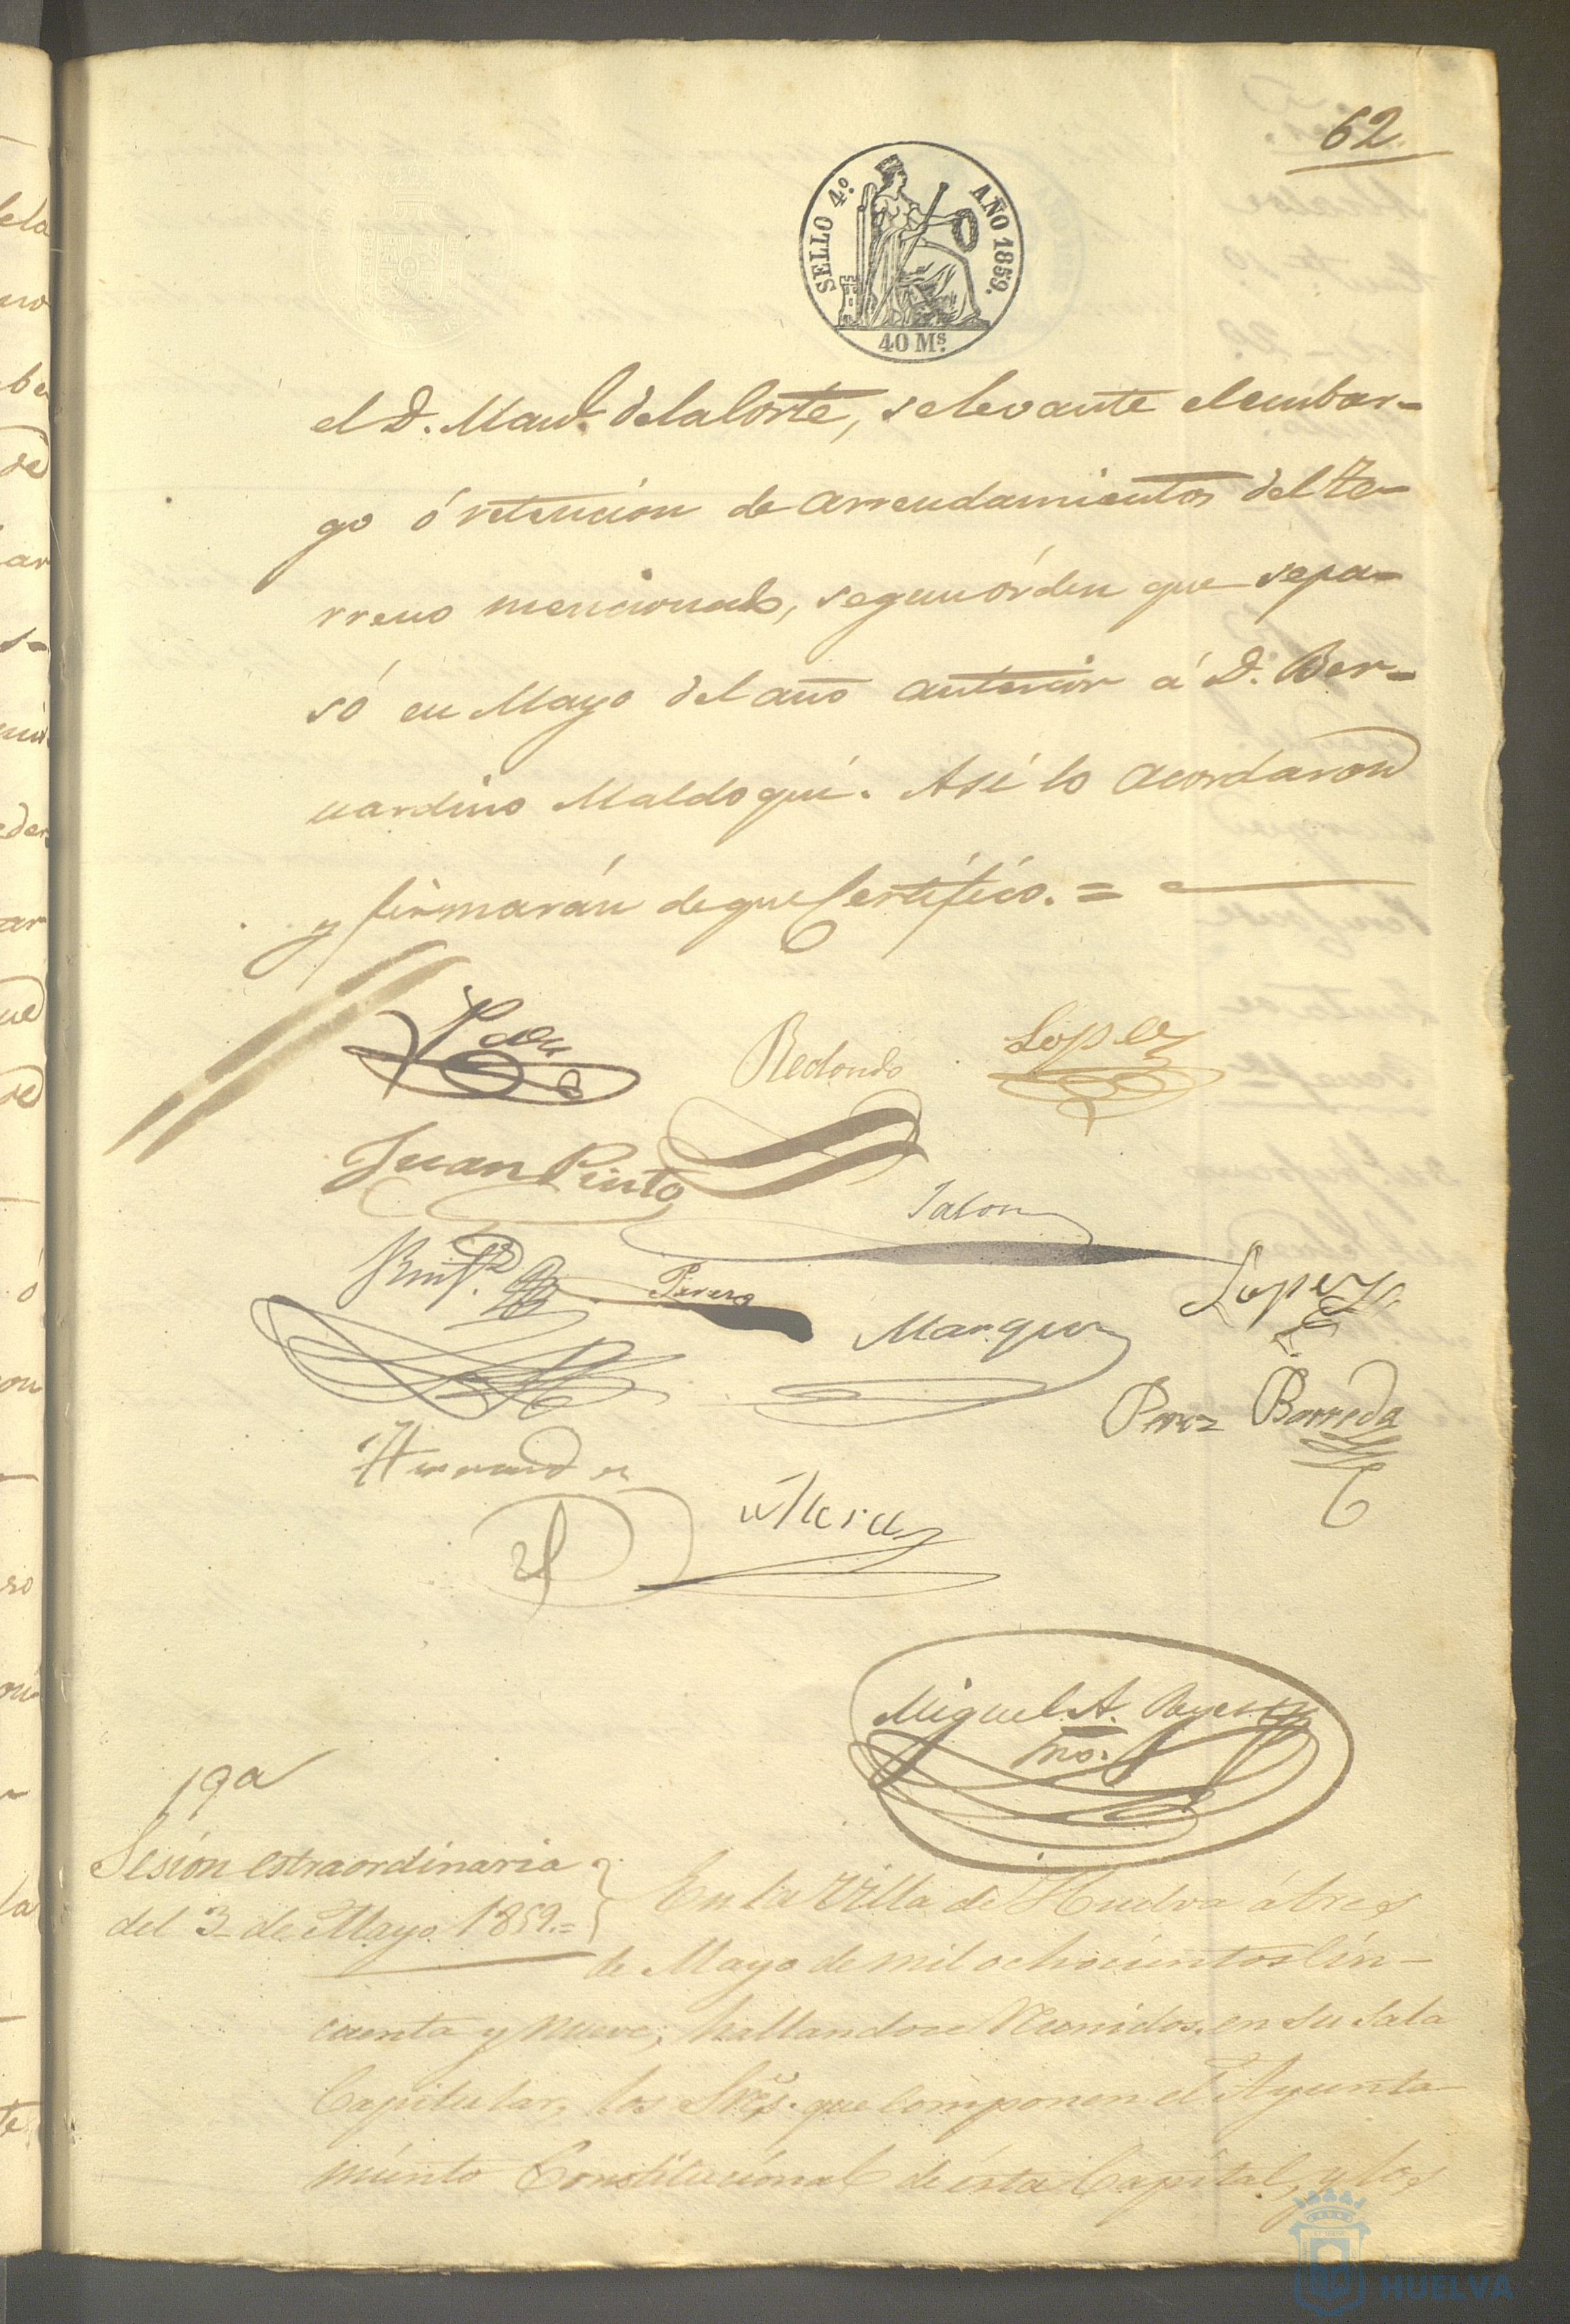 62
SELLO 4º. AÑO 1859.
40 Ms.
el D. Manl. de la Corte, se levante el embar-
go ó retencion de arrendamientos del te-
rreno mencionado, segun órden que se pa-
só en Mayo del año anterior á D. Ber-
nardino Maldoqui. Asi lo acordaron
y firmarán de que Certifico. =
Redondo
Lopez
Juan Pinto
Jalon
Lopez
Marquez
Perez Barreda
Hernandez
Miguel A.
Srio.
19a
Sesion estraordinaria
del 3 de Mayo 1859.=
En la Villa de Huelva á tres
de Mayo de mil ochocientos cin-
cuenta y nueve, hallandose Reunidos en su Sala
Capitular, los Sres. que componen el Ayunta
miento Constitucional de ésta Capital, y los
HUELVA